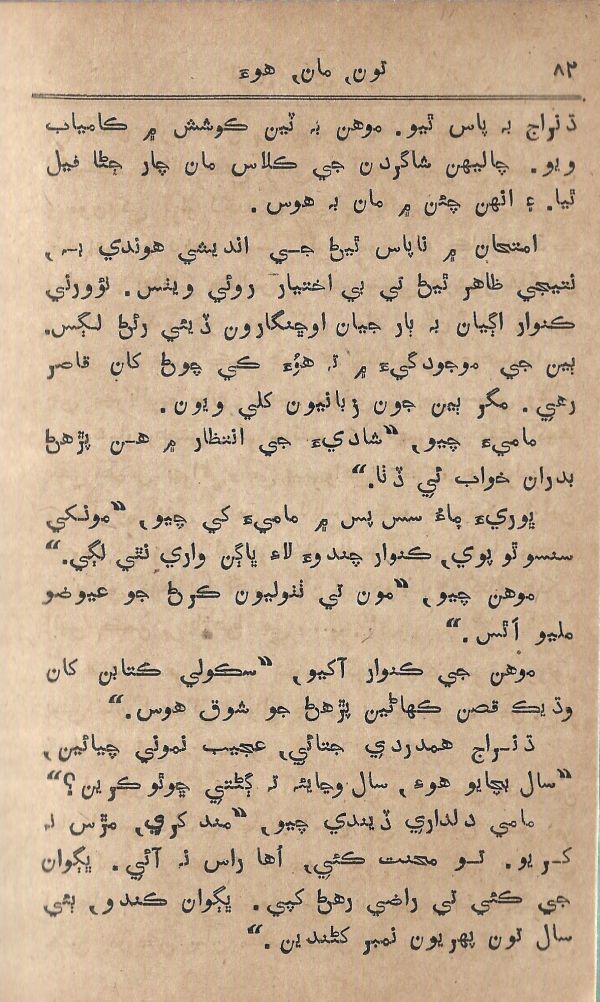 ۸۲ تون, مان, هوءَ
ڌنراج بہ پاس ٿيو. موهن بہ ٽين ڪوشش ۾ ڪامياب
ويو. چاليهن شاگردن جي ڪلاس مان چار ڄڻا فيل
ٿيا. ۽ انهن چئن ۾ مان بہ هوس.
امتحان ۾ ناپاس ٿيڻ جي انديشي هوندي بہ,
نتيجي ظاهر ٿيڻ تي بي اختيار روئي ويٺس. نؤورني
ڪنوار اڳيان بہ ٻار جيان اوڇنگارون ڏيئي رئڻ لڳس.
ٻين جي موجودگيءَ ۾ تہ هوُءَ ڪي چوڻ کان قاصر
رهي. مگر ٻين جون زبانيون کلي ويون.
ماميءَ چيو, ”شاديءَ جي انتظار ۾ هن پڙهڻ
بدران خواب ئي ڏٺا.“
پوريءَ ماءُ سس پس ۾ ماميءَ کي چيو, ”مونکي
سنسو ٿو پوي, ڪنوار چندوءَ لاءِ ڀاڳن واري نٿي لڳي.“
موهن چيو, ”مون تي ٺٺوليون ڪرڻ جو عيوضو
مليو اَٿس.“
موهن جي ڪنوار آکيو, ”سڪولي ڪتابن کان
وڌيڪ قصن ڪهاڻين پڙهڻ جو شوق هوس.“
ڌنراج همدردي جتائي, عجيب نموني چيائين,
”سال بچايو هوءِ, سال وڃايئہ تہ ڳڻتي ڇوٿو ڪرين؟“
مامي دلداري ڏيندي چيو, ”مند کري, مڙس نہ
ڪريو. تو محنت ڪئي, اُها راس نہ آئي. ڀڳوان
جي ڪئي تي راضي رهڻ کپي. ڀڳوان ڪندو, ٻئي
سال تون پهريون نمبر کڻندين.“